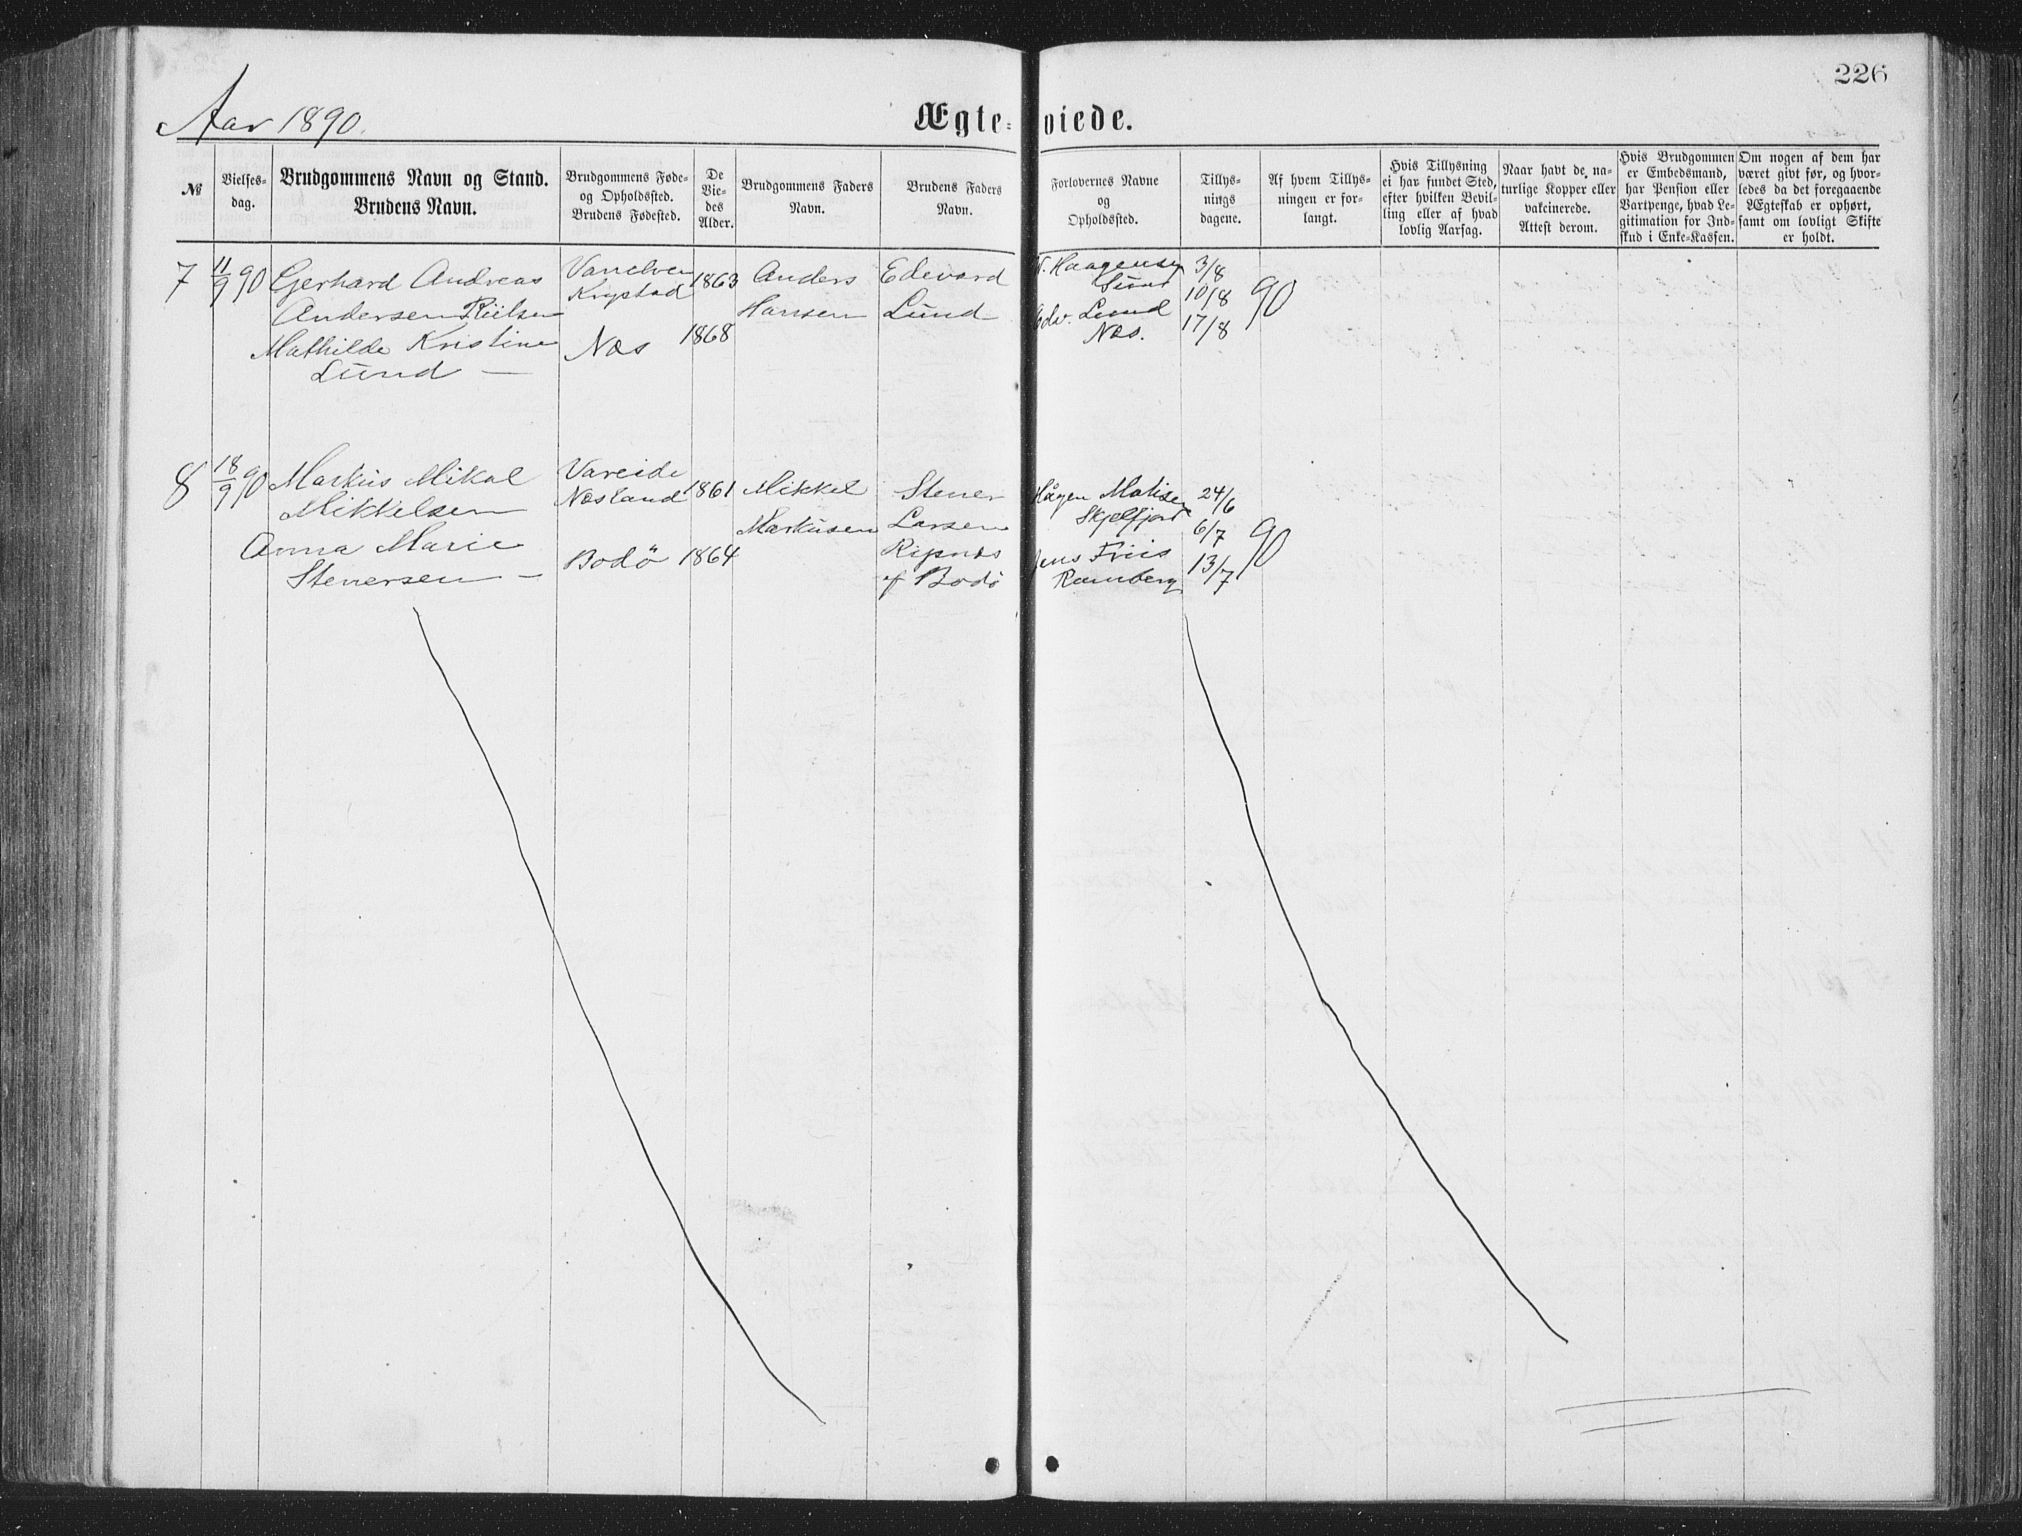 226
Aar 1890.
Ægte= viede.
№
Vielses-
dag.
Brudgommens Navn og Stand.
Brudens Navn.
Brudgommens Føde-
og Opholdssted.
Brudens Fødested.
De
Vie-
des
Alder.
Brudgommens Faders
Navn.
Brudens Faders
Navn.
Forlovernes Navne
og
Opholdssted.
Tillys-
nings
dagene.
Af hvem Tillys-
ningen er for-
langt.
Hvis Tillysning
ei har fundet Sted,
efter hvilken Bevil-
ling eller af hvad
lovlig Aarsag.
Naar havt de na-
turlige Kopper eller
vakcinerede.
Attest derom.
Hvis Brudgommen
er Embedsmand,
har Pension eller
Vartpenge, hvad Le-
gitimation for Ind-
skud i Enke-Kassen.
Om nogen af dem har
været givt før, og hvor-
ledes da det foregaaende
Ægteskab er ophørt,
samt om lovligt Skifte
er holdt.
7
11/9 90
Gerhard Andreas
Andersen
Mathilde Kristine
Lund —
Krystad
Næs
1863
1868
Anders
Hansen
Edevard
Lund
Haagensen
Sund
Edv. Lund
Næs.
3/8
10/8
17/8
90
8
18/9 90
Markus Mikal
Mikkelsen
Anna Marie
Stenersen —
Vareide
Næsland
Bodø
1861
1864
Mikkel
Markusen
Stener
Larsen
Ripnæs
af Bodø
Hågen Matisen
Skjelfjord
Jens Friis
Ramberg
24/6
6/7
13/7
90